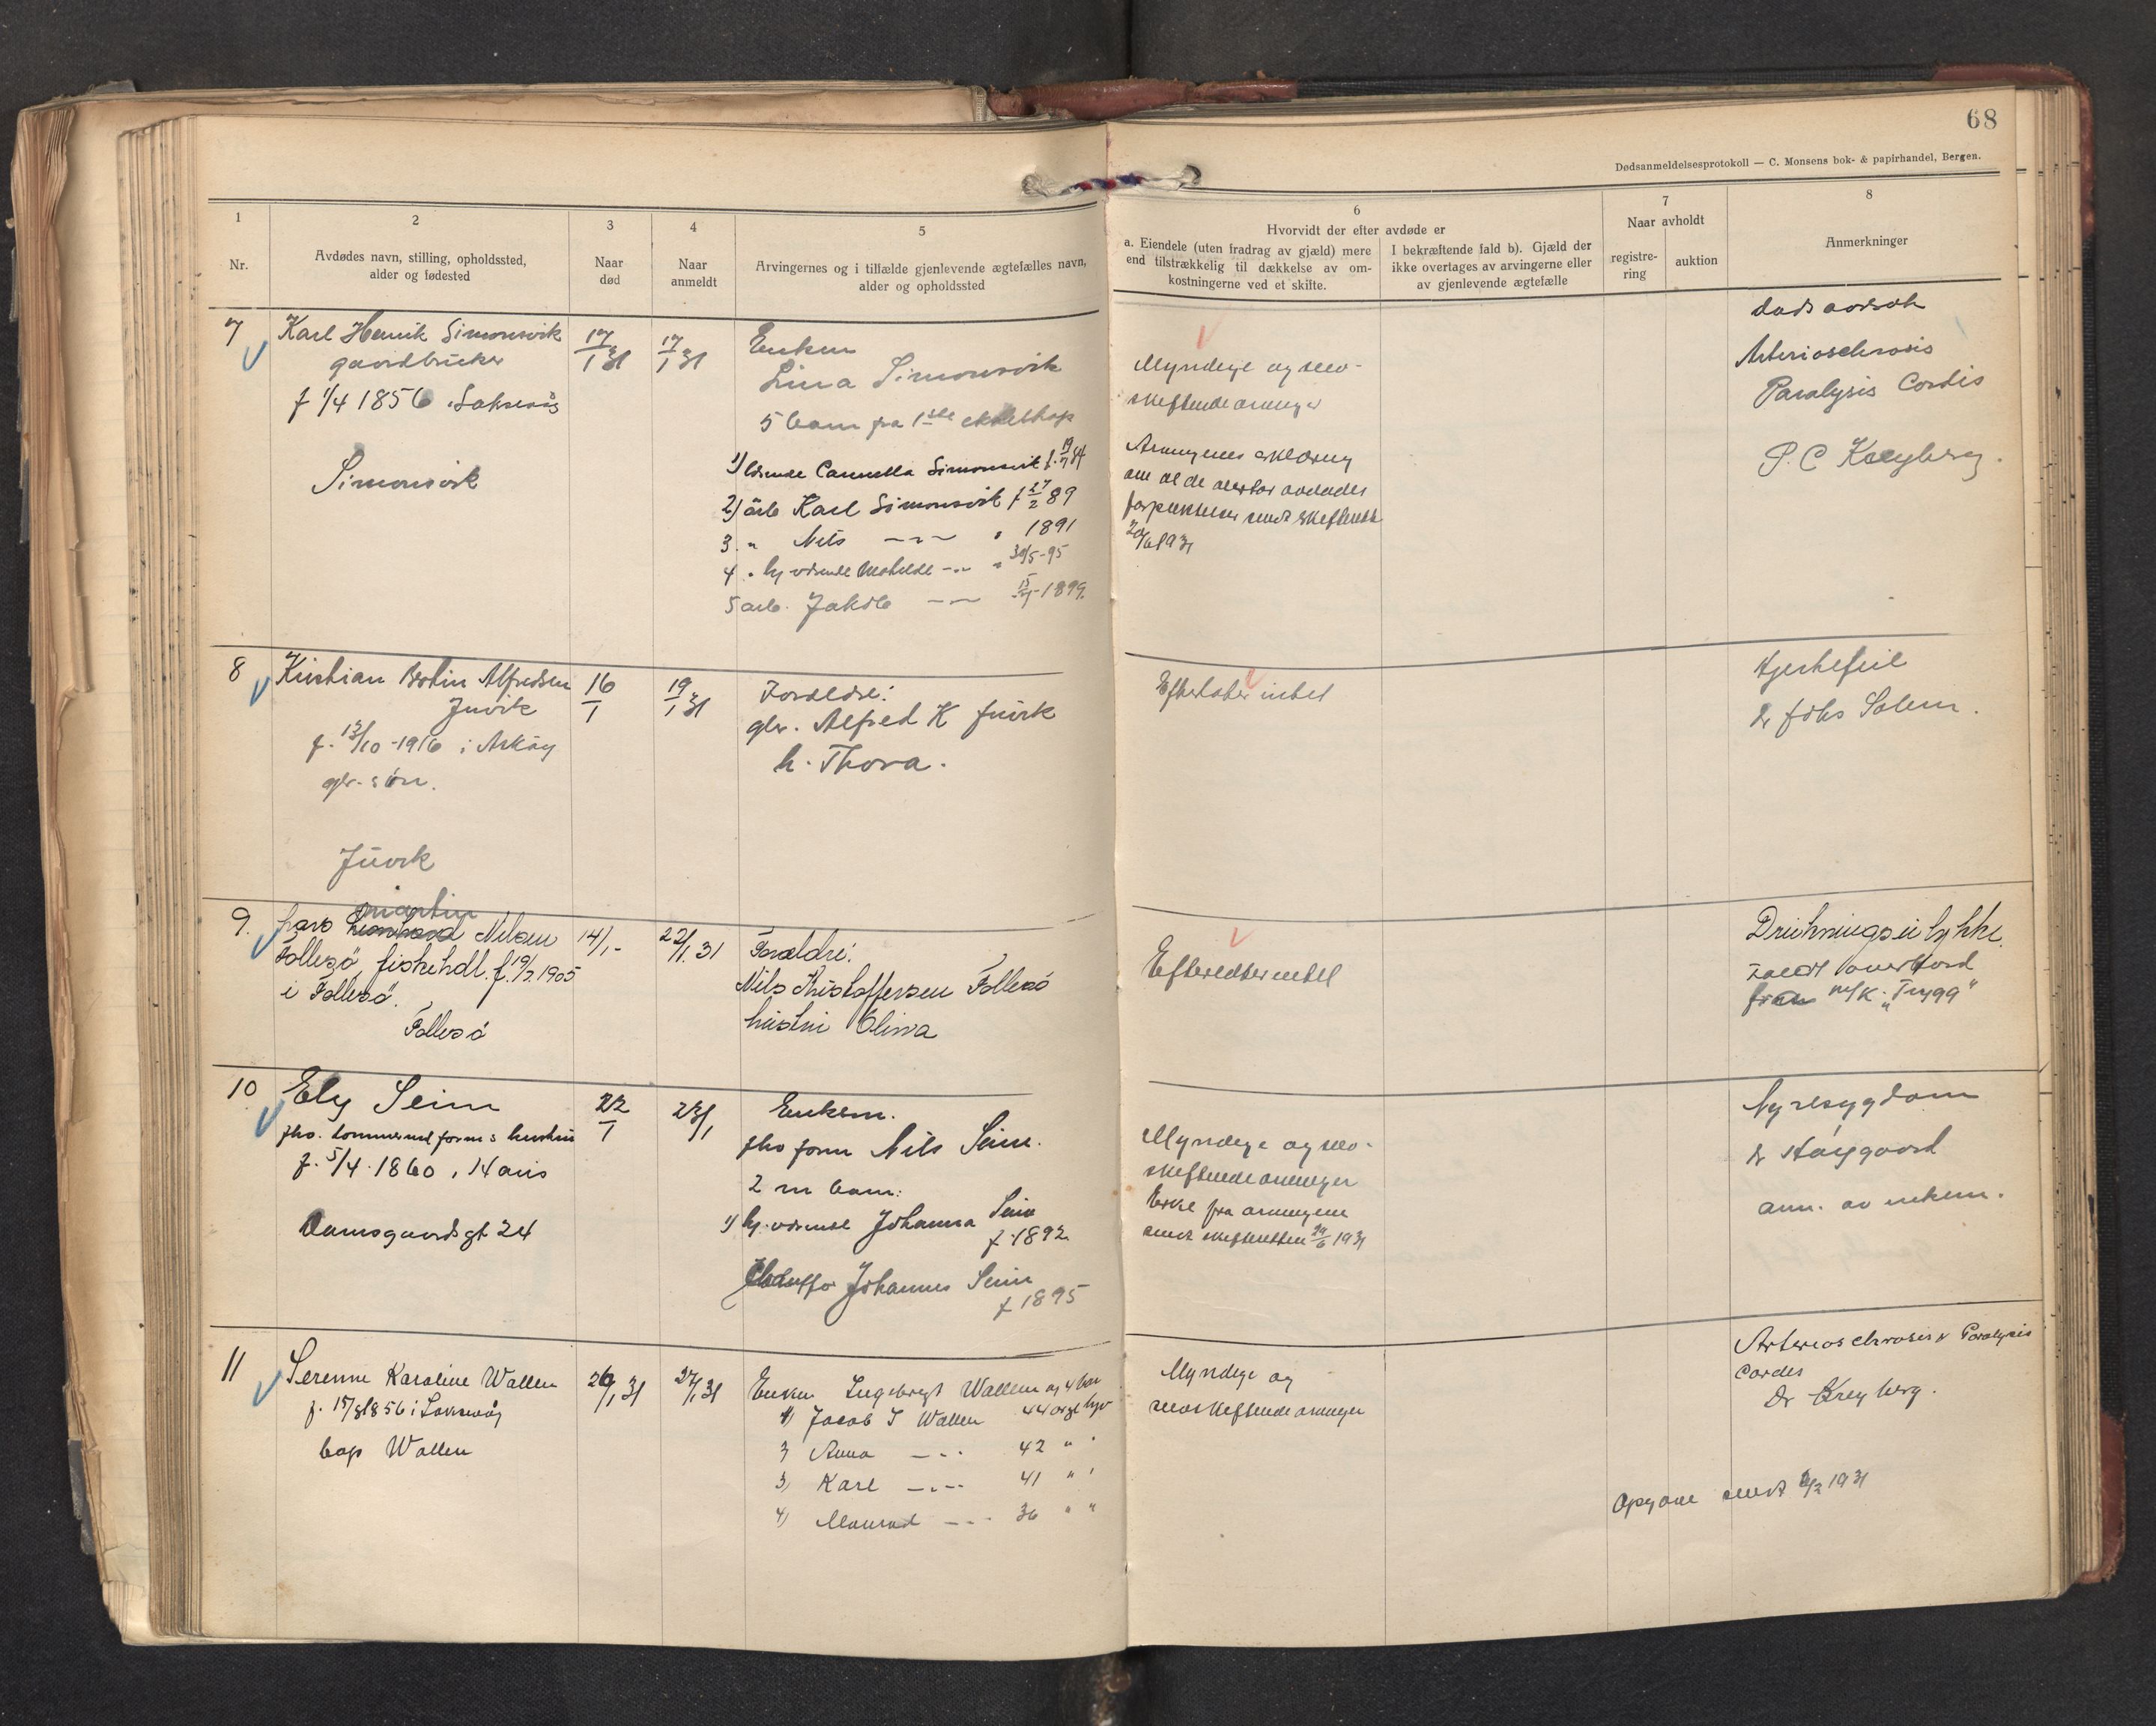 68
Dødsanmeldelsesprotokoll — C. Monsens bok- & papirhandel, Bergen.
1
Nr.
2
Avdødes navn, stilling, opholdssted,
alder og fødested
3
Naar
død
4
Naar
anmeldt
5
Arvingernes og i tilfælde gjenlevende ægtefælles navn,
alder og opholdssted
6
Hvorvidt der efter avdøde er
a. Eiendele (uten fradrag av gjæld) mere
end tilstrækkelig til dækkelse av om-
kostningerne ved et skifte.
I bekræftende fald b). Gjæld der
ikke overtages av arvingerne eller
av gjenlevende ægtefælle
7
Naar avholdt
registre-
ring
auktion
8
Anmerkninger
7
Karl Henrik Simonsvik
gaardbruker
f 1/4 1856 i Laksevåg
Simonsvik
17/1 31
17/1 31
Enken
Lina Simonsvik
5 barn fra 1ste ekteskap
1)
Simonsvik f.
2) arb Karl Simonsvik f 27/2 89
3. " Nils " 1891
4 " 30/5-95
5 arb. Jakob 1899.
Myndige og selv-
skiftende arvinger
Arvingenes erklæring
om at de avdødes
forpliktelser sendt skifteretten
1931
dødsårsak
Arteriosclerosis
Paralysis Cordis
P. C Kreyberg.
8
Kristian Bertin Alfredsen
Juvik
f. 13/10-1916 i Askøy
gbr. søn.
Juvik
16/1
19/1 31
Forældre:
gbr. Alfred K Juvik
h. Thora.
Efterlater intet
Hjertefeil
Dr Johs Solem.
9.
martin
Nilsen
Follesø, fiskehdl. f. 19/7 1905
i Follesø.
Follesø
14/1-
22/1. 31
Forældre:
Nils Kristoffersen Follesø
hustru Oliva
Efterlater intet
Drukningsulykke.
Faldt overbord
fra m/k. "Trygg"
10
Ely Seim
fho. tømmermd form s hustru
f. 5/4. 1860 i Havs
Damsgaardsgt 24
22/1
23/1
Enkem.
fho form Nils Seim.
2 m barn:
1) hj. værende Johanna Seim
f. 1892.
Johannes Seim
f 1895
Myndige og selv-
skiftende arvinger
Erkl fra arvingene
sendt skifteretten 29/6 1931
Nyresygdom
Dr Haugaard
anm. av enkem.
11
Serenne Karoline Wallem
f. 15/8 1856 i Laksevåg
bop Wallem
26/1 31
27/1 31
Enkem Ingebrigt Wallem og 4 barn
1) Jacob I Wallem 44
2 Anna 42 " "
3) Karl 41 " "
4) Monrad 36 " "
Myndige og
selvskiftende arvinger
Arteriosclerosis & Paralysis
Cordis
Dr Kreyberg.
Opgave sendt 1931